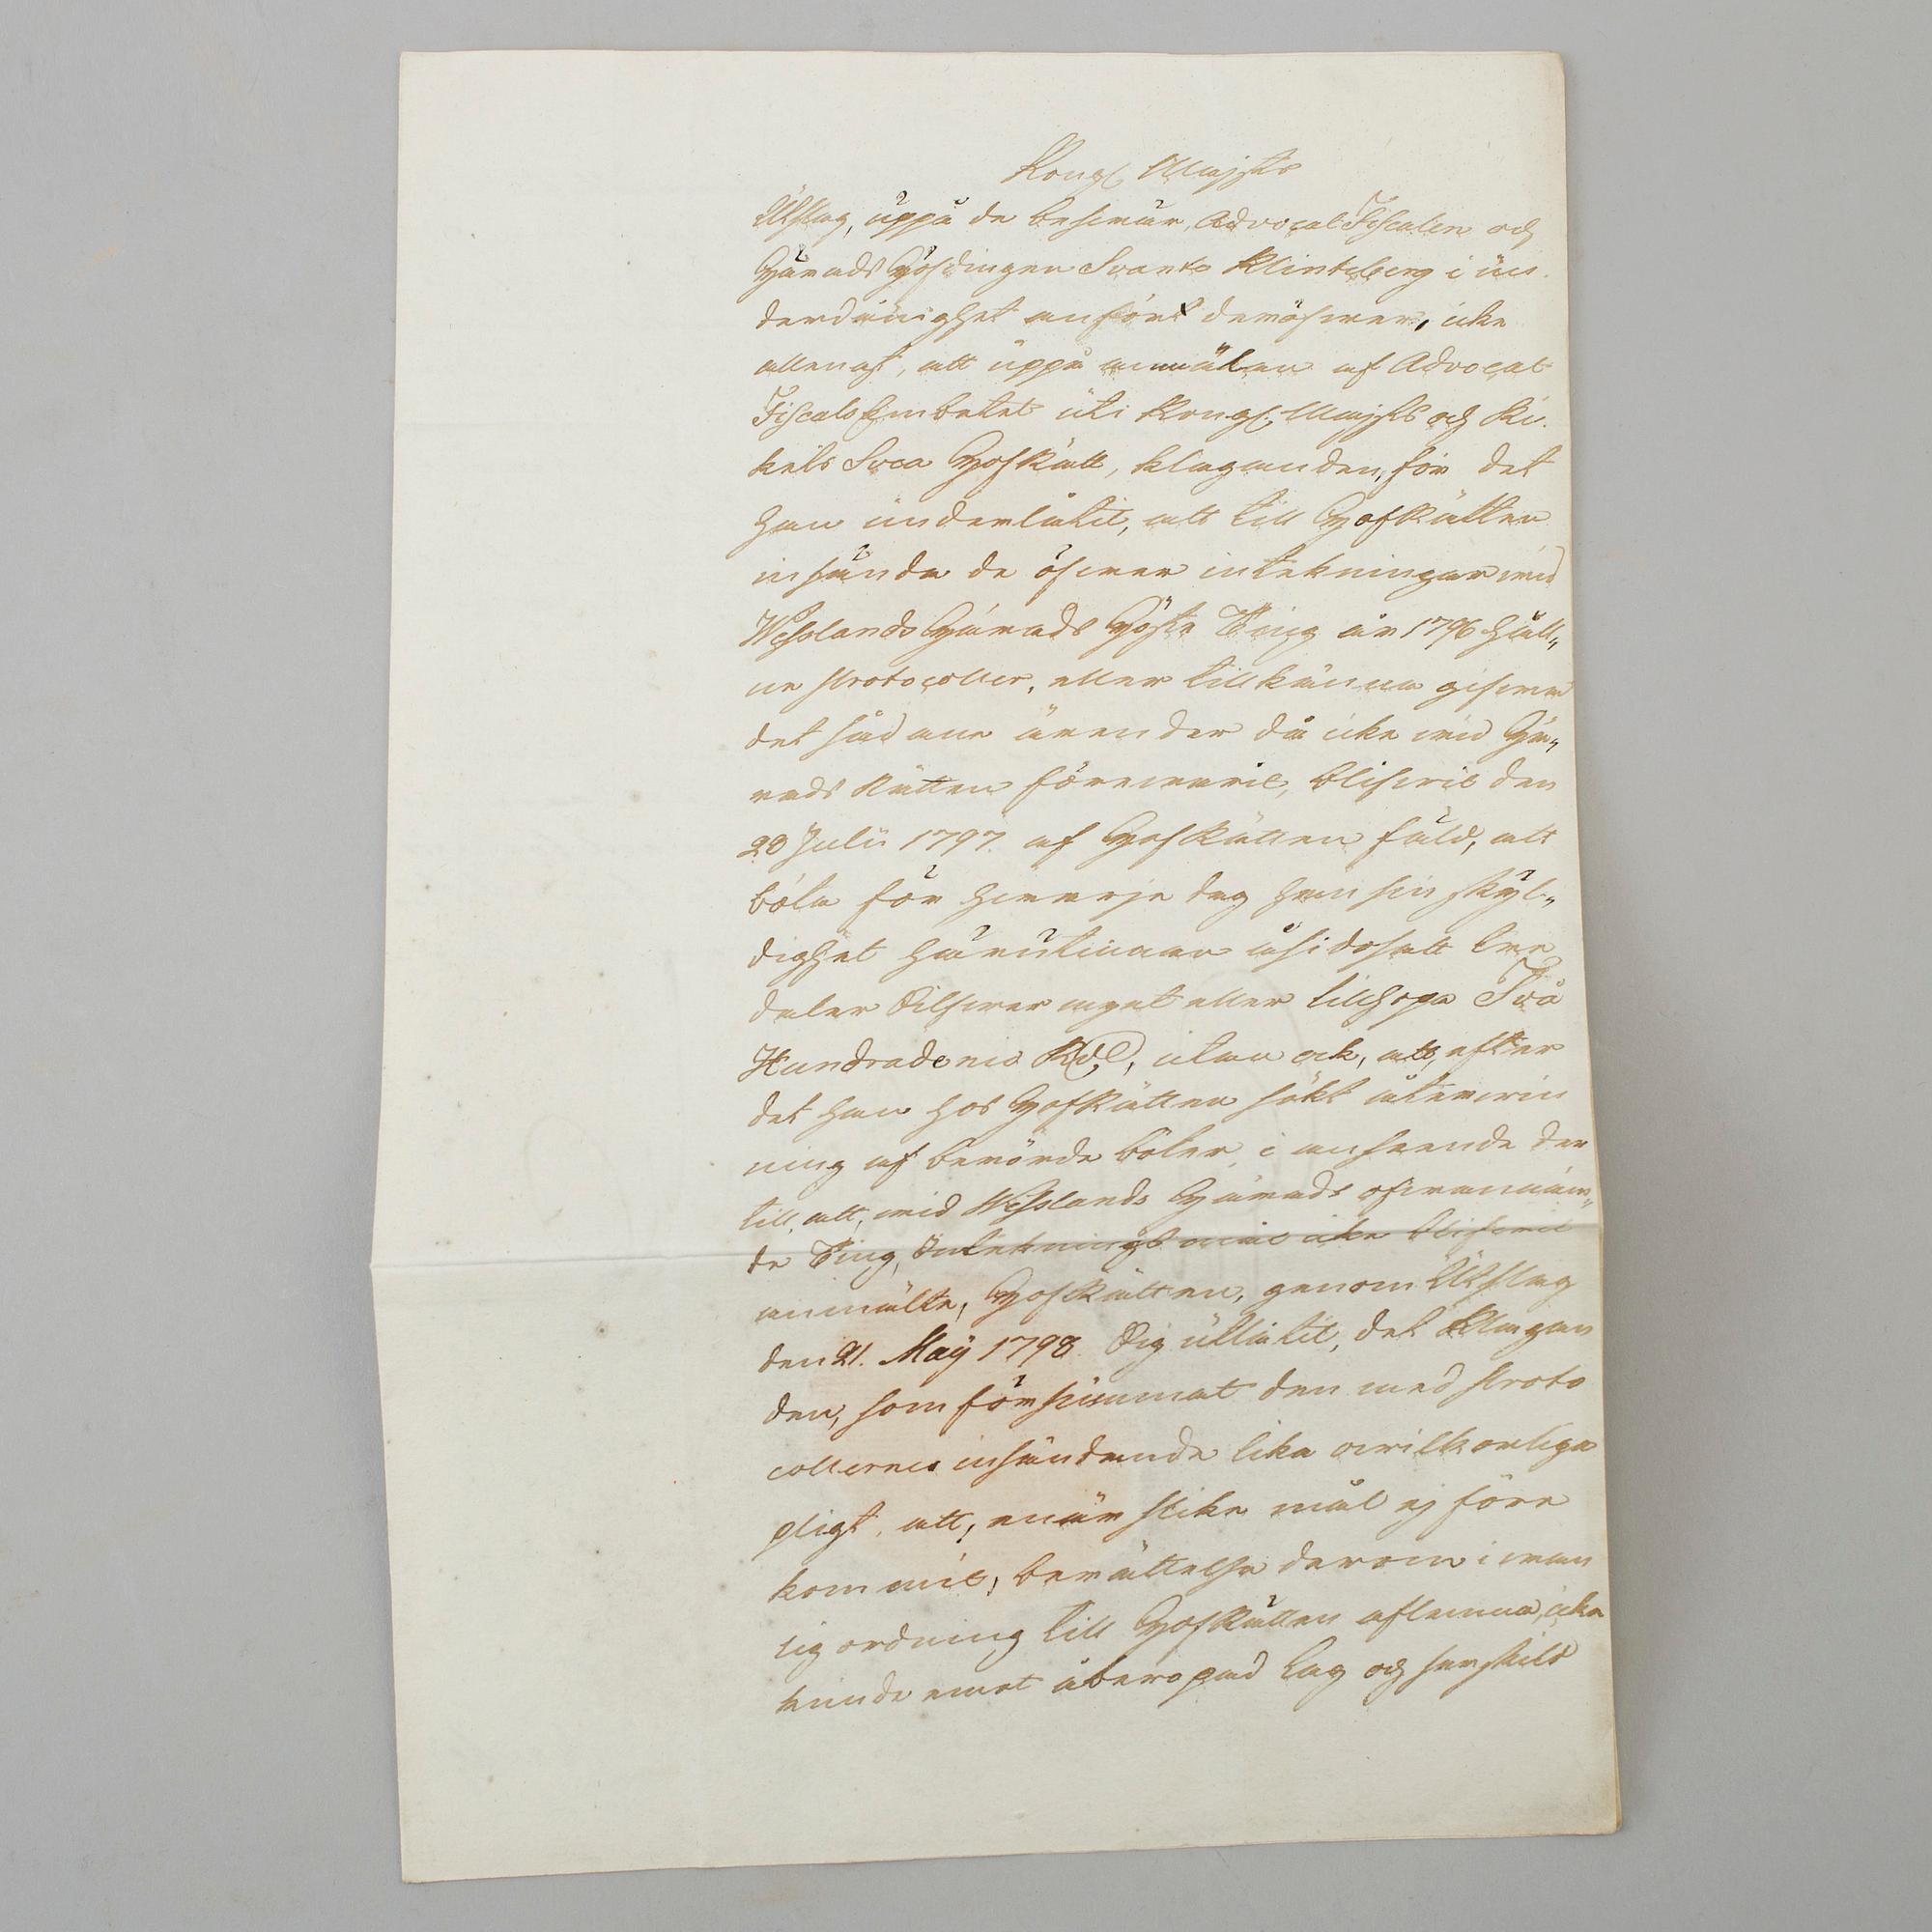 Kongl. Majsts
Utslag, uppå de besswär, Advocat Fiscalen och
Härads Höfdingen Svante Klinteberg i un-
derdånighet anfört deröfwer, icke
allenast, att uppå anmälan af Advocat
Fiscals Embetet uti Kongl. Majsts och Ri-
kets Svea HofRätt, klaganden, för det
han underlåtit, att till HofRätten
insända de öfwer inteckningar wid
Wesslands Härads Höste Ting år 1796 håll„
ne Protocoller, eller tillkänna gifwa
det sådane ärender då icke wid Hä„
rads Rätten förewarit, blifwit den
20 Julii 1797. af HofRätten fäld, att
böta för hwarje dag han sin skyl„
dighet härutinnan åsidosatt tre
daler Silfwermynt eller tillhopa Två
Hundrade nio Rd, utan ock, att, efter
det han hos HofRätten sökt återwin
ning af berörde böter, i anseende der
till, att, wid Wesslands Härads ofwannäm„
de Ting, Inteknings mål icke blifwit
anmälte, HofRätten, genom Utslag
den 21. Maÿ 1798. Sig utlåtit, det Klagan
den, som försummat den med Proto
collernes insändande lika owilkorliga
pligt, att, enär slike mål ej före
kommit, berättelse derom i wan
lig ordning till HofRätten aflemna, icke
kunde emot åberopad Lag och serskild